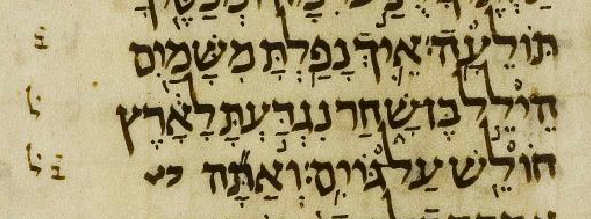 תּוֹלֵעָה׃ אֵיךְ נָפַלְתָּ מִשָּׁמַיִם ב̇
הֵילֵל בֶּן שָׁחַר נִגְדַּעְתָּ לָאָרֶץ ל̇
חוֹלֵשׁ עַל גּוֹיִם׃ וְאַתָּה ב̇ ל̇